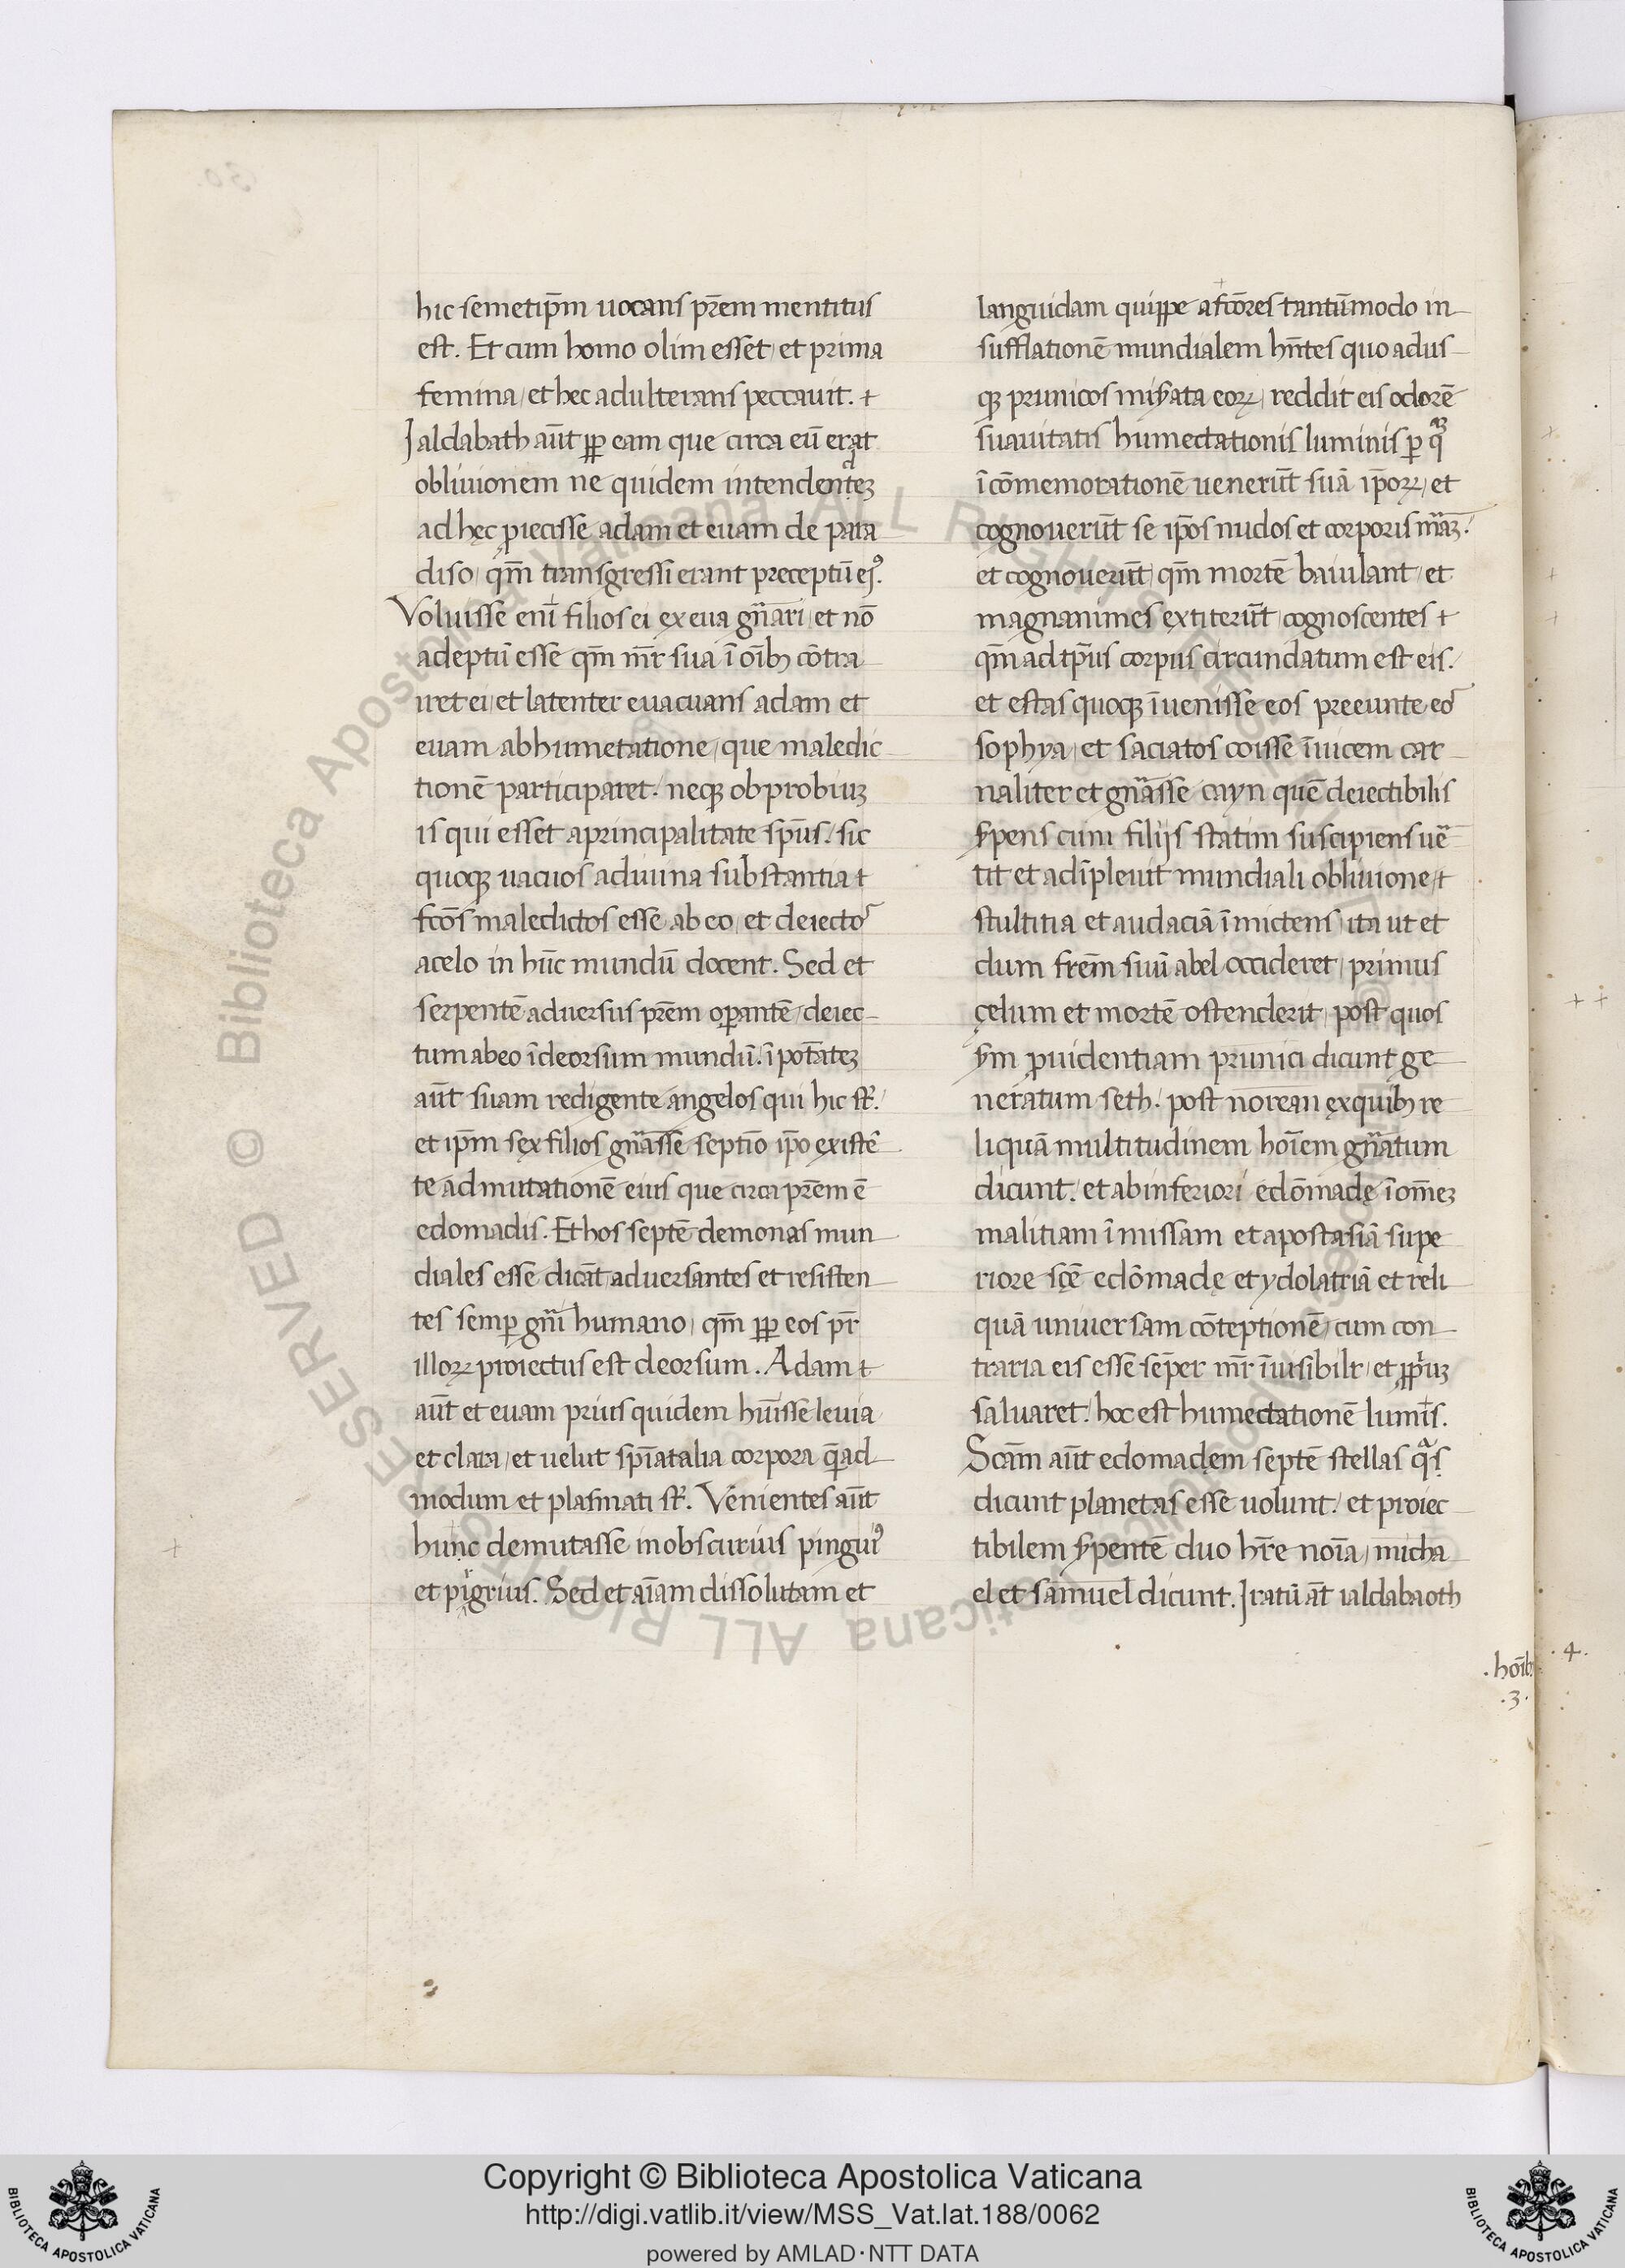 hic semetip̄m uocans pr̄em mentitus
est. Et cum homo olim esset/ et prima
femina/ et hec adulterans peccauit. +
Jaldabath aūt ꝓp eam que circa eū erat
obliuionem ne quidem intendentez
ad hęc ꝓiecisse adam et euam de para
diso/ qm̄ transgressi erant preceptū ejꝰ.
Voluisse enī filios ei ex eua gn̄ari/ et nō
adeptū esse qm̄ mr̄ sua ī oīb cōtra
iret ei/ et latenter euacuans adam et
euam ab humetatione/ que maledic
tionē participaret/. neqꝫ obprobiuz
is qui esset a principalitate sp̄us/. sic
quoqꝫ uacuos a diuina substantia +
fc̄os maledictos esse ab eo/ et deiecto
a celo in hūc mundū docent. Sed et
serpentē aduersus pr̄em oꝑantē/ deiec
tum ab eo ī deorsum mundū. ī potātez
aūt suam redigente angelos qui hic st̄/.
et ip̄m sęx filios gn̄asse septīo ip̄o existē
te ad mutationē eius que circa pr̄em ē
edomadis. Et hos septē demonas mun
diales esse dicāt/ aduersantes et resisten
tes semꝑ gn̄i humano/ qm̄ ꝓp eos pr̄
illoꝝ proiectus est deorsum. Adam +
aūt et euam prius quidem hūisse leuia
et clara/ et uelut sp̄iatalia corpora q̄ad
modum et plasmati st̄. Venientes aūt
hunc demutasse in obscurius pinguiꝰ
et pigrius. Sed et aīam dissolutam et
languidam quippe a fc̄ores tantūmodo in
sufflationē mundialem hn̄tes quo adus
qꝫ prunicos mis̄ata eoꝝ/ reddit eis odorē
suauitatis humectationis luminis ꝑ q̄ꝫ
ī cōmemorationē uenerūt suā ip̄oꝝ/ et
cognouerūt se ip̄os nudos et corporis māz/.
et cognouerūt/ qm̄ mortē baiulant/ et
magnanimes extiterūt/ cognoscentes +
qm̄ ad tp̄us corpus circundatum est eis/.
et estas quoqꝫ īuenisse eos preeunte eo
sophya/ et saciatos coisse īuicem car
naliter et gn̄asse cayn quē deiectibilis
s̄pens cum filijs statim suscipiens uē
tit et adīpleuit mundiali obliuione/ +
stultitia et audaciā īmictens/ ita ut et
dum frēm suū abel occideret/ primus
çelum et mortē ostenderit/ post quos
s̄m ꝓuidentiam prunici dicunt ge
neratum seth/. post norean ex quib re
liquā multitudinem hoīem gn̄atum
dicunt/. et ab inferiori edōmadę ī om̄ez
malitiam īmissam et apostasiā supe
riore scē edōmadę et ydolatriā et reli
quā uniuersam cōteptionē/ cum con
traria eis esse sēper mr̄ īuisibilr/ et ꝓp̄iuz
saluaret/. hoc est humectationē lumīs.
Scām aūt edomadęm septē stellas qͣs
dicunt planetas esse uolunt/. et proiec
tibilem s̄pentē duo hr̄e noīa/ micha
el et samuel dicunt. Jratū āt ialdabaoth
. hoīb
. 3 .
. 4 .
Copyright © Biblioteca Apostolica Vaticana
http://digi.vatlib.it/view/MSS_Vat.lat.188/0062
powered by AMLAD·NTT DATA
BIBLIOTECA APOSTOLICA VATICANA
BIBLIOTECA APOSTOLICA VATICANA